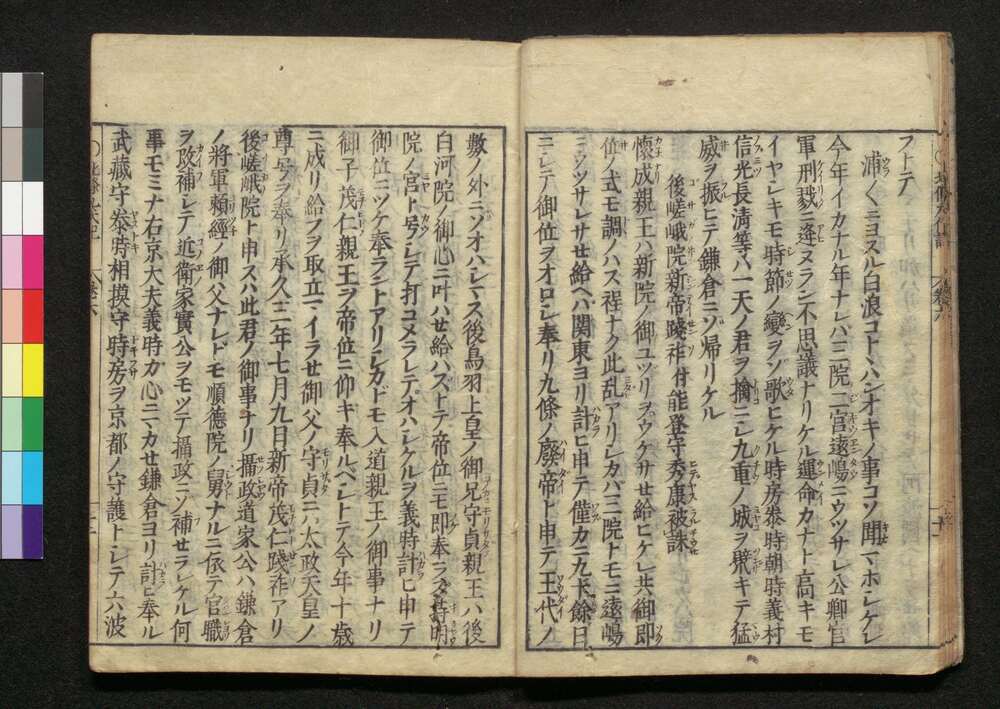 フトテ
浦くニヨスル白浪コトハンオキノ事コソ聞マホシケレ
今年イカナル年ナレハ三院二宮遠嶋ニウツサレ公卿官
軍刑戮ニ逢ヌラン不思議ナリケル運命カナト高キモ
イヤシキモ時節ノ變ヲゾ歌ヒケル時房泰時朝時義村
信光長清等ハ一天ノ君ヲ擒ニシ九重ノ城ヲ破キテ猛
威ヲ振ヒテ鎌倉ニゾ帰リケル
後嵯峨院新帝踐祚付能登守秀康被誅
懐成親王ハ新院ノ御ユツリヲウケサセ給ヒケレ共御即
位ノ式モ調ノハス程ナク此乱アリシカバ三院トモニ遠嶋
ニウツサレサセ給ヘハ関東ヨリ計ヒ申テ僅カニ九十餘日
ニシテ御位ヲオロシ奉リ九條ノ廢帝ト申テ王代ノ
數ノ外ニソオハシマス後鳥羽上皇ノ御兄守貞親王ハ後
白河院ノ御心ニ叶ハせ給ハストテ帝位ニモ即奉ラズ持明
院ノ宮ト号シテ打コメラレテオハシケルヲ義時計ヒ申テ
御位ニツケ奉ラントアリシカドモ入道親王ノ御事ナリ
御子茂仁親王ヲ帝位ニ仰キ奉ルベシトテ今年十歳
ニ成リ給フヲ取立マイラせ御父ノ守貞ニハ太政天皇ノ
尊号ヲ奉リ承久三年七月九日新帝茂仁踐祚アリ
後嵯峨院ト申スハ此君ノ御事ナリ攝政道家公ハ鎌倉
ノ將軍頼經ノ御父ナレドモ順徳院ノ舅ナルニ依テ官職
ヲ改補シテ近衛家實公ヲモツテ攝政ニソ補せラレケル何
事モミナ右京大夫義時カ心ニマカせ鎌倉ヨリ計ヒ奉ル
武藏守泰時相摸守時房ヲ京都ノ守護トシテ六波